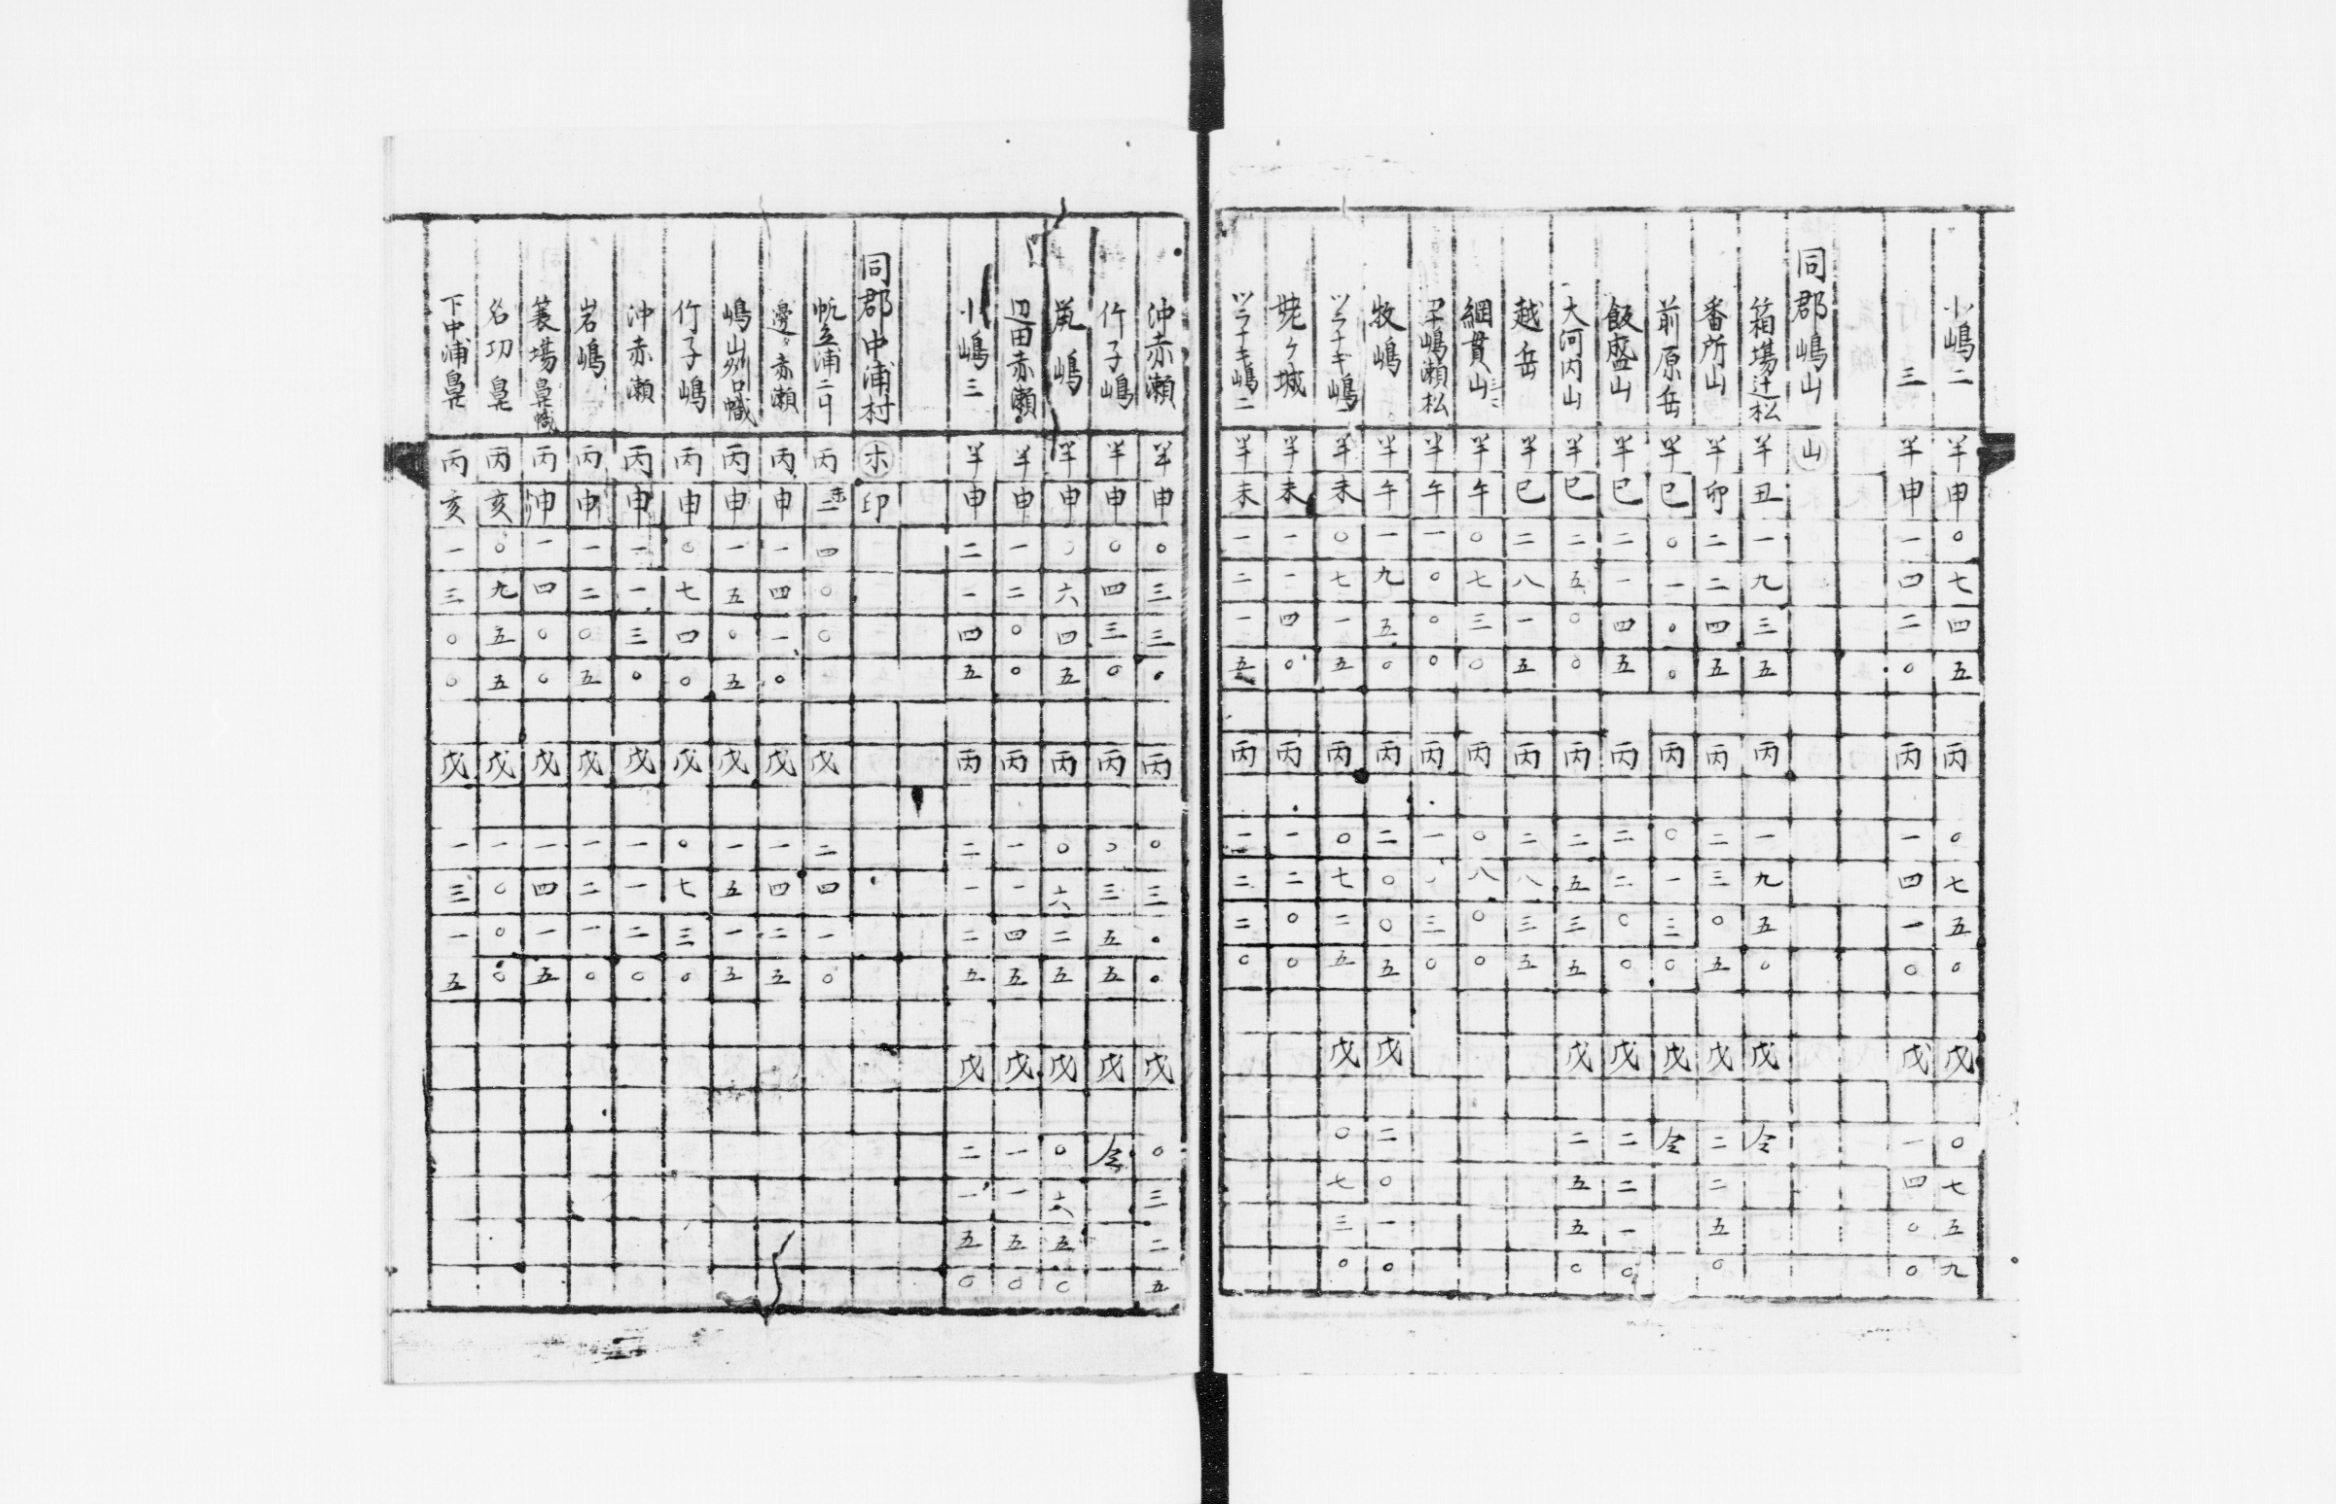 小嶋二 半申 〇七四五 丙 〇七五〇 戊 〇七五九
三 半申 一四二〇 丙 一四一〇 戊 一四〇〇
同郡嶋山 山
箱場辻松 半丑 一九三五 丙 一九五〇 戊 仝
番所山 半卯 二二四五 丙 二三〇五 戊 二二五〇
前原岳 半巳 〇一〇〇 丙 〇一三〇 戊 仝
飯盛山 半巳 二一四五 丙 二二〇〇 戊 二二一〇
大河内山 半巳 二五〇〇 丙 二五三五 戊 二五五〇
越岳 半巳 二八一五 丙 二八三五
網貫山 半午 〇七三〇 丙 〇八〇〇
嶋瀬松 半午 一〇〇〇 丙 一〇三〇
牧嶋 半午 一九五〇 丙 二〇〇五 戊 二〇一〇
ツラナキ嶋 半未 〇七一五 丙 〇七二五 戊 〇七三〇
姥ヶ城 半未 一一四〇 丙 一二〇〇
ツラナキ嶋二 半未 一二一五 丙 二二二〇
沖赤瀬 半申 〇三三〇 丙 〇三〇〇 戊 〇三二五
竹子嶋 半申 〇四三〇 丙 〇三五五 戊 仝
嶋 半申 〇六四五 丙 〇六二五 戊 〇六五〇
赤瀬 半申 一二〇〇 丙 一一四五 戊 一一五〇
小嶋三 半申 二一四五 丙 二一二五 戊 二一五〇
同郡中浦村 ホ印
帆立浦二 丙 四〇〇 戊 二四一〇
邊赤瀬 丙申 一四一〇 戊 一四二五
嶋山別口幟 丙申 一五〇五 戊 一五一五
竹子嶋 丙申 〇七四〇 戊 〇七三〇
沖赤瀬 丙申 一一三〇 戊 一一二〇
岩嶋 丙申 一二〇五 戊 一二一〇
簑場鼻幟 丙申 一四〇〇 戊 一四一五
名切鼻 丙亥 〇九五五 戊 一〇〇〇
下中浦鼻 丙亥 一三〇〇 戊 一三一五